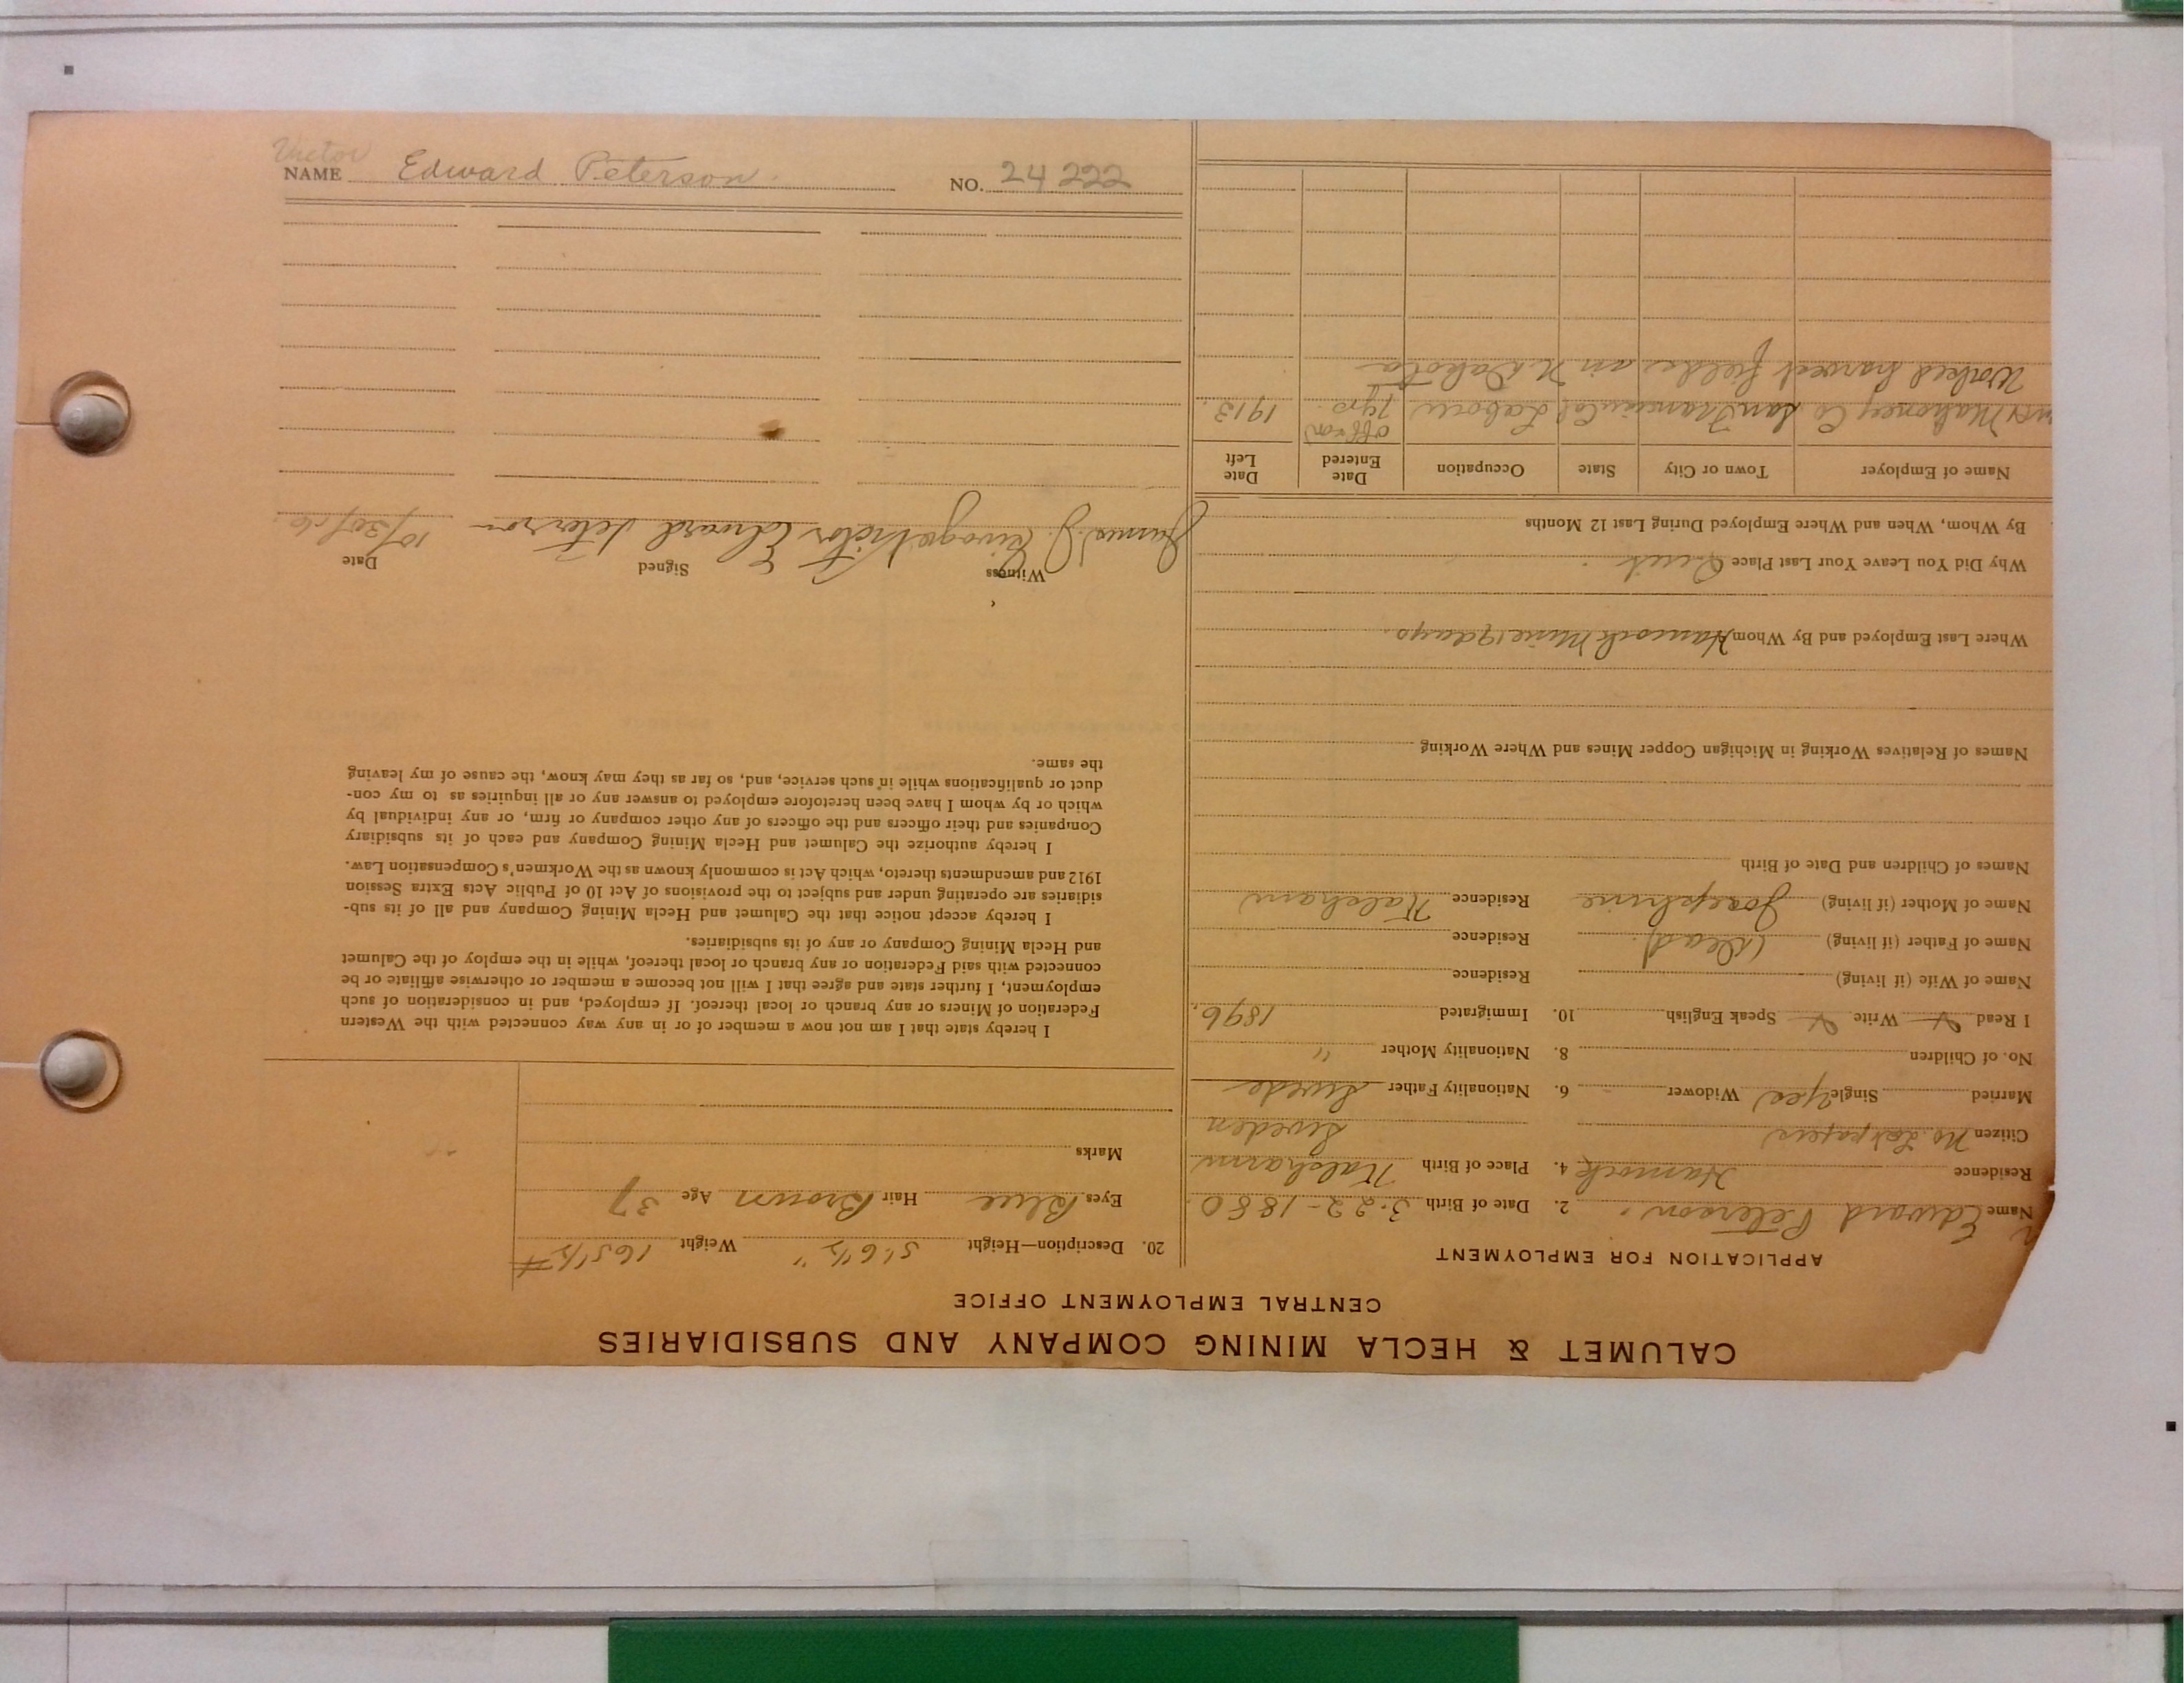 CALUMET & HECLA MINING COMPANY AND SUBSIDIARIES
CENTRAL EMPLOYMENT OFFICE
APPLICATION FOR EMPLOYMENT
Name Edward Peterson. 2. Date of Birth 3-22-1880.
Residence Hancock 4. Place of Birth
Citizen No. 1st papers Sweden
Married Single Yes Widower 6. Nationality Father Swede
No. of Children 8. Nationality Mother "
I Read Write Speak English 10. Immigrated 1896.
Name of Wife (if living) Residence
Name of Father (if living) (Dead) Residence
Name of Mother (if living) Josephine Residence
Names of Children and Date of Birth
Names of Relatives Working in Michigan Copper Mines and Where Working
Where Last Employed and By Whom Hancock Mine 19 days.
Why Did You Leave Your Last Place Quit.
By Whom, When and Where Employed During Last 12 Months
Name of Employer Town or City State Occupation Date Entered Date Left
off & on
Mahoney Co San Francisco Cal Labor 7 yrs. 1913.
Worked harvest fields in N. Dakota
20. Description—Height 5' 6 1/2" Weight 165 1/2 #
Eyes Blue Hair Brown Age 37
Marks
I hereby state that I am not now a member of or in any way connected with the Western
Federation of Miners or any branch or local thereof. If employed, and in consideration of such
employment, I further state and agree that I will not become a member or otherwise affiliate or be
connected with said Federation or any branch or local thereof, while in the employ of the Calumet
and Hecla Mining Company or any of its subsidiaries.
I hereby accept notice that the Calumet and Hecla Mining Company and all of its sub-
sidiaries are operating under and subject to the provisions of Act 10 of Public Acts Extra Session
1912 and amendments thereto, which Act is commonly known as the Workmen's Compensation Law.
I hereby authorize the Calumet and Hecla Mining Company and each of its subsidiary
Companies and their officers and the officers of any other company or firm, or any individual by
which or by whom I have been heretofore employed to answer any or all inquiries as to my con-
duct or qualifications while in such service, and, so far as they may know, the cause of my leaving
the same.
Witness Signed Date
James J. Victor Edward Peterson 10/30/16.
Victor
NAME Edward Peterson. NO. 24222